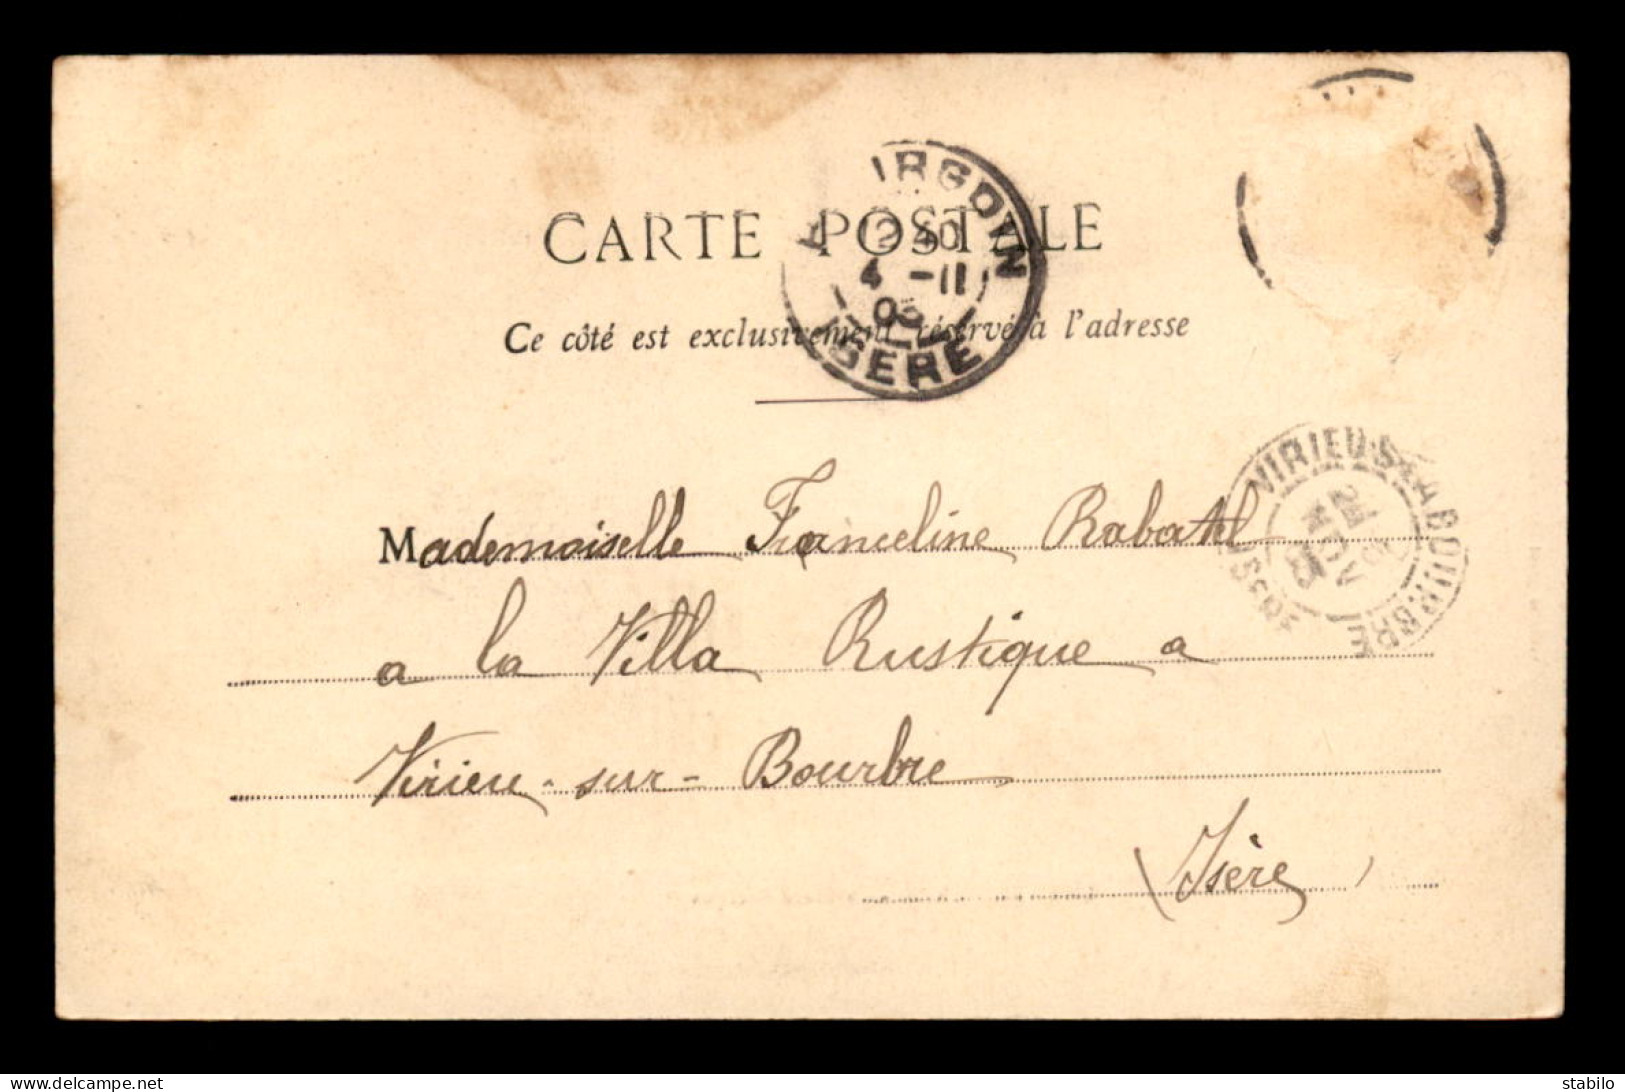 CARTE POSTALE
Ce côté est exclusivement réservé à l'adresse
BOURGOIN
12 40
4 -11
ISÈRE
VIRIEU-S-LA BOURBRE
Mademoiselle Franceline Rabatel
a la Villa Rustique a
Virieu-sur-Bourbre
(Isère)
stabilo